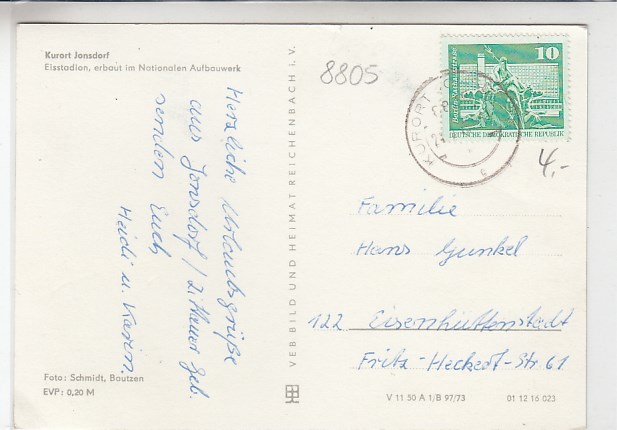 Kurort Jonsdorf
Eisstadion, erbaut im Nationalen Aufbauwerk
Herzliche Urlaubsgrüße
aus Jonsdorf / Zittauer Geb.
senden Euch
Heidi u. Karin.
Foto: Schmidt, Bautzen
EVP: 0,20 M
VEB BILD UND HEIMAT REICHENBACH i. V.
8805
10
Berlin, Rathausstraße
DEUTSCHE DEMOKRATISCHE REPUBLIK
KURORT
4,-
Familie
Hans Gunkel
122 Eisenhüttenstadt
Fritz-Heckert-Str. 61
V 11 50 A 1/B 97/73
01 12 16 023